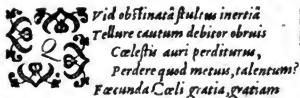 QVid obſtinatâ ſtultus inertiâ
Tellure cautum debitor obruis
Cœleſtia auri perditurus,
Perdere quod metuis, talentum?
Fœcunda Cœli gratia, gratiam